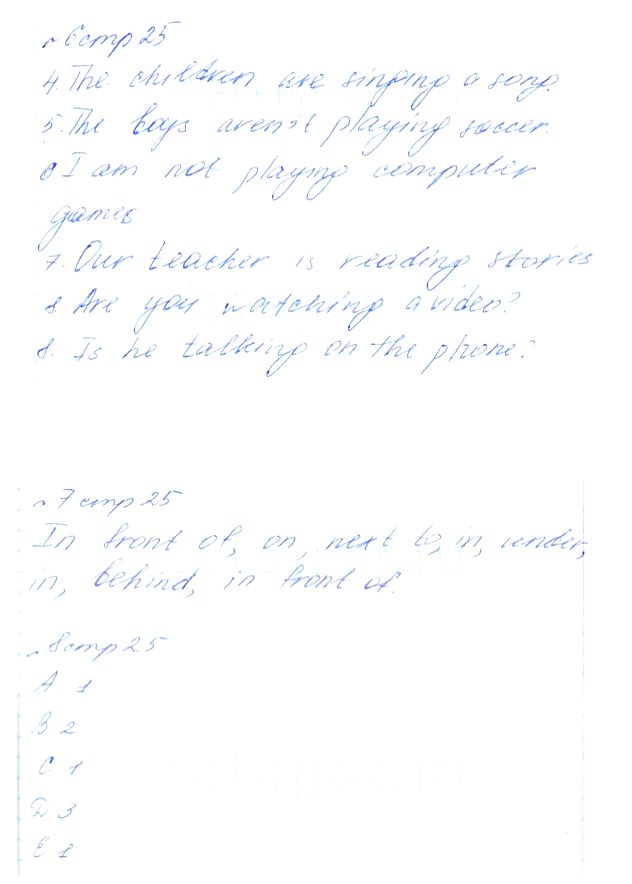 № 6 стр 25
4. The children are singing a song.
5. The boys aren't playing soccer.
6 I am not playing computer
games
7. Our teacher is reading stories
8. Are you watching a video?
8. Is he talking on the phone?
№ 7 стр 25
In front of, on, next to, in, under,
in, behind, in front of.
№ 8 стр 25
A 1
B 2
C 1
D 3
E 1